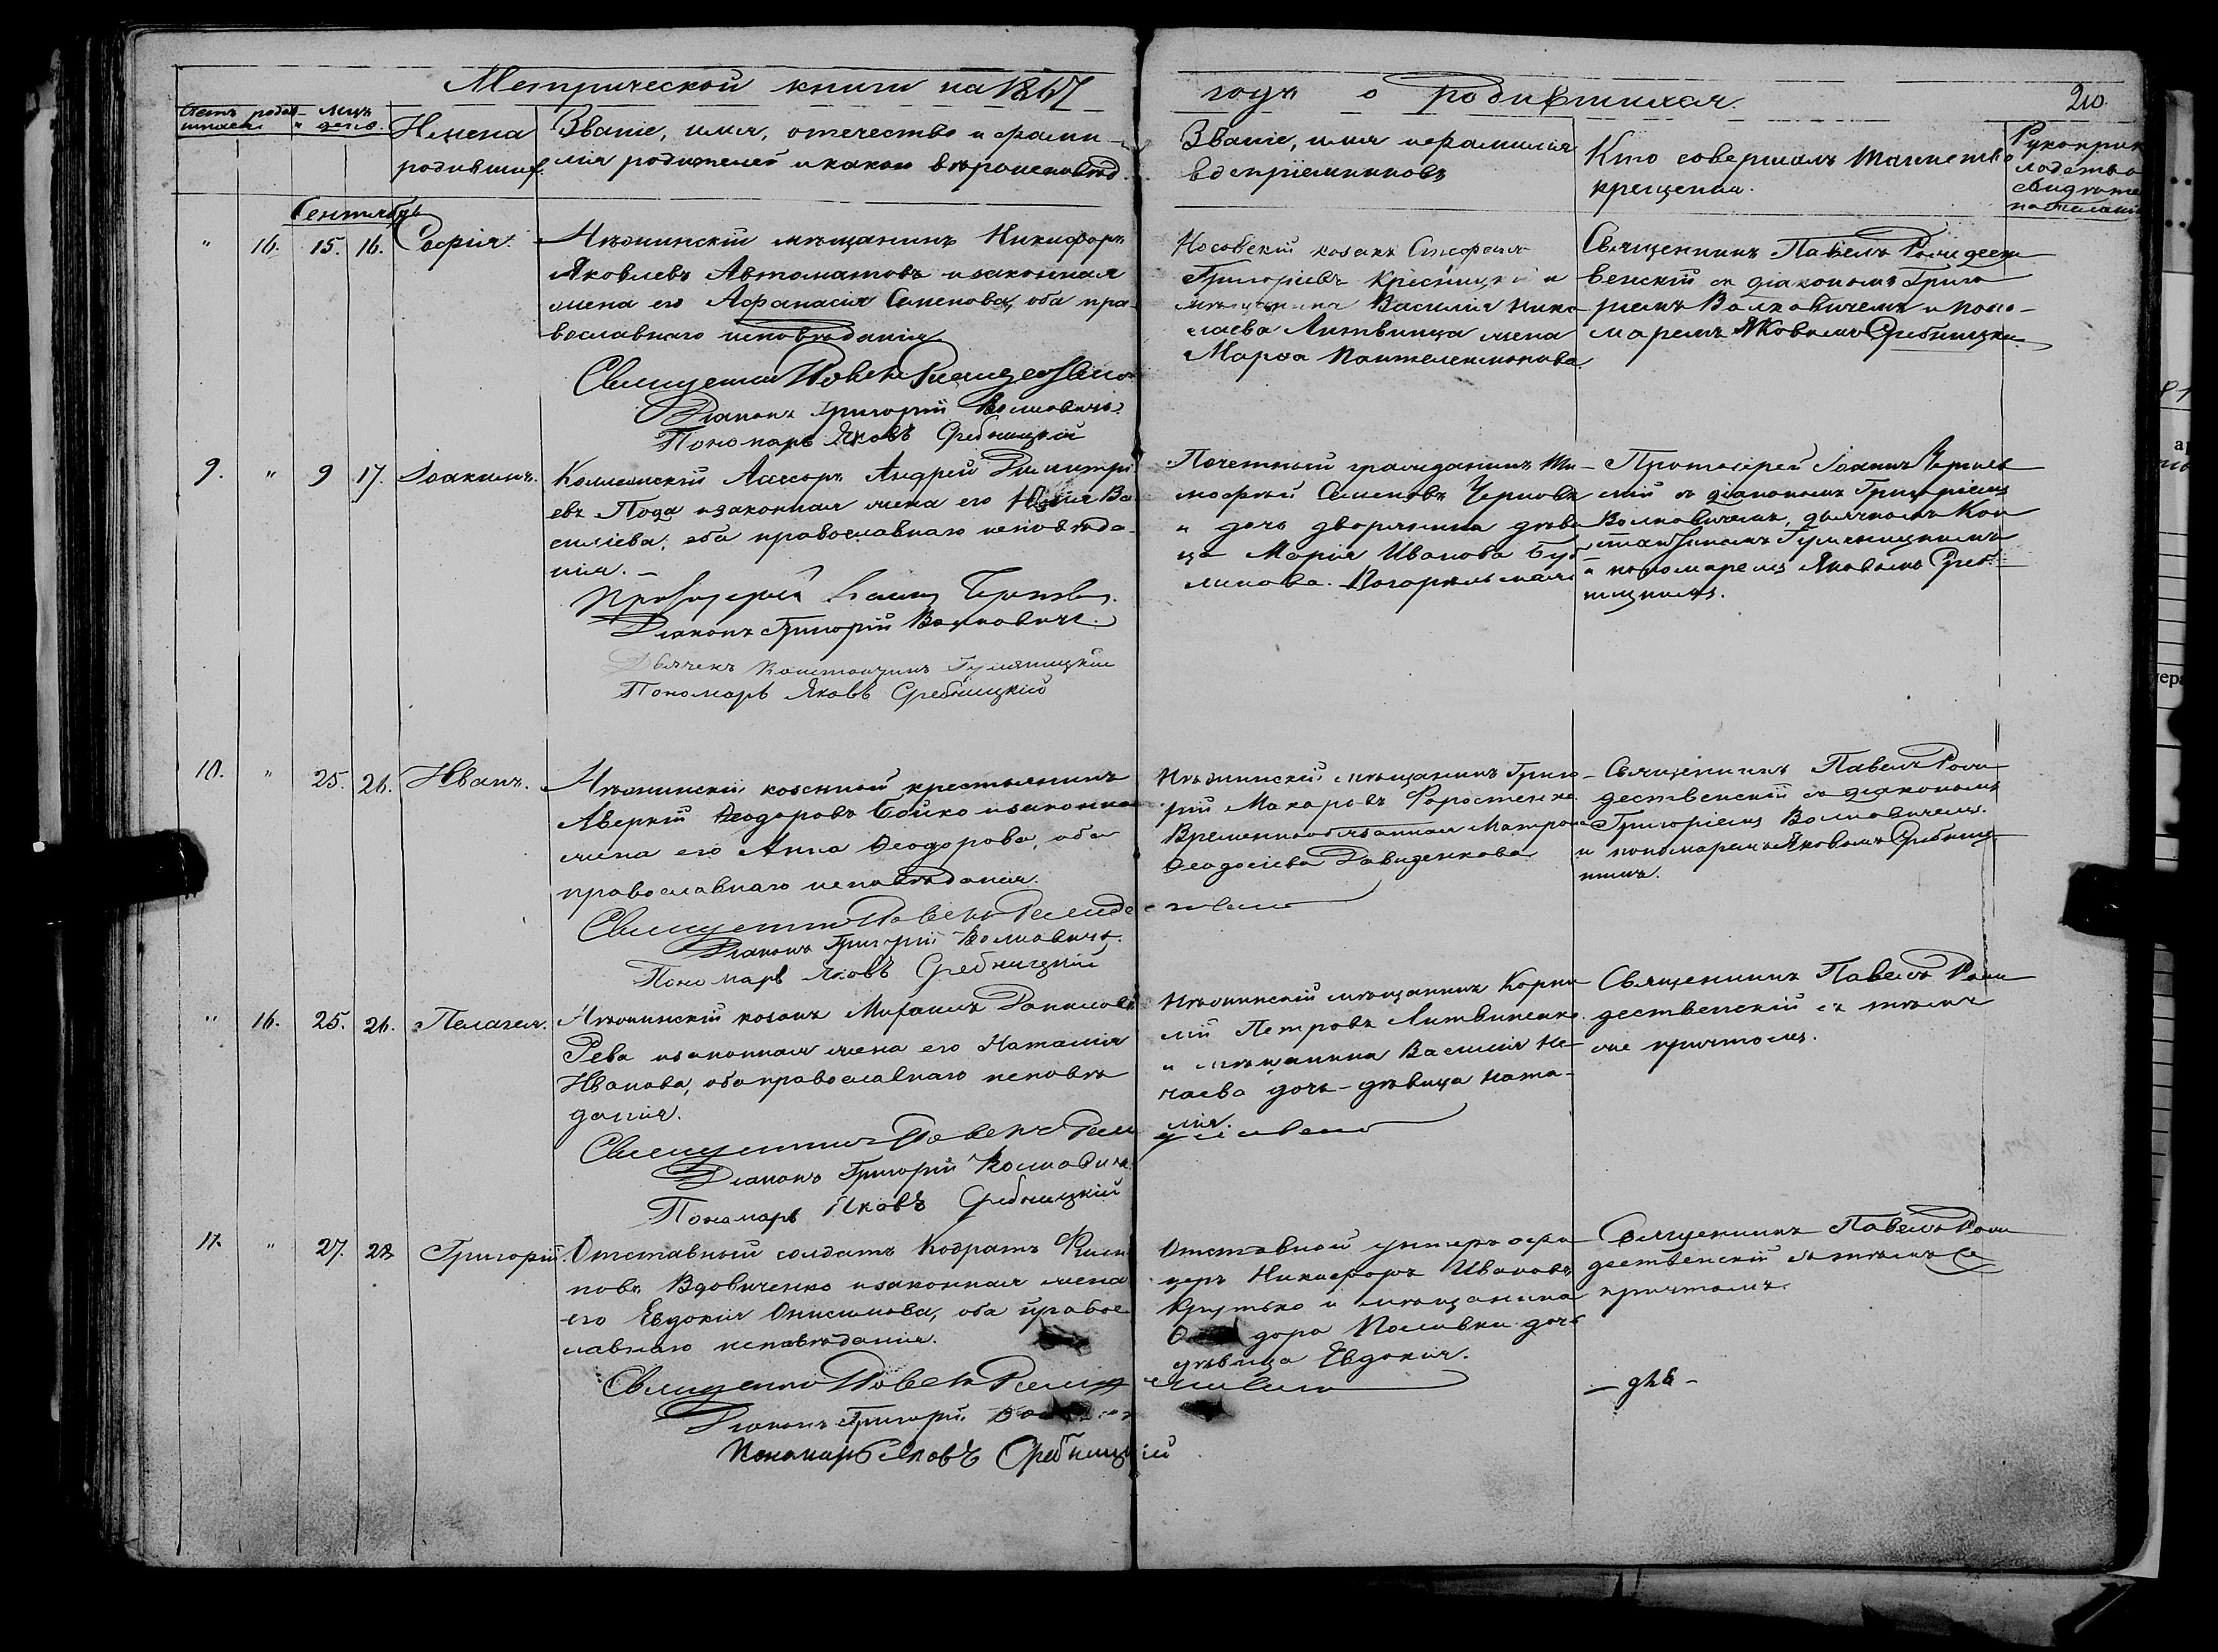 Метрической книги на 1867
годъ о родившихся
210.
Имена
родившихъ.
Званіе, имя, отечество и фами-
лія родителей и какого вѣроисповѣд.
Званіе, имя и фамилія
воспріемниковъ
Кто совершалъ таинство
крещенія.
Рукоприк
ладство
свидѣте
по желанію
Сентябрь
" 16. 15. 16. Софія.
Нѣжинскій мѣщанинъ Никифоръ
Яковлевъ Автоматовъ и законная
жена его Афанасія Семенова, оба пра-
вославнаго исповѣданія
Священникъ Павелъ Рождественскій
Діаконъ Григорій Волковичъ.
Пономарь Яковъ Сребницкій
Носовскій козакъ Стефанъ
Григоріевъ и
Василія Нико
лаева Литвинца жена
Марѳа Пантелеимонова
Священникъ Павелъ Рождест
венскій съ діакономъ Григо
ріемъ Волковичемъ и поно-
маремъ Яковомъ Сребницки
9. " 9 17. Іоакимъ.
Коллежскій Ассесоръ Андрей Димитрі
евъ Пода и законная жена его Юлія Ва
силіева, оба православнаго исповѣда-
нія. —
Протоіерей Іоаннъ
Діаконъ Григорій Волковичъ.
Дьячекъ Константинъ
Пономарь Яковъ Сребницкій
Почетный гражданинъ Ти-
мофей Семеновъ Черновъ
и дочь дворянина дѣви
ца Марія Иванова
Протоіерей Іоаннъ
съ діакономъ Григоріемъ
Волковичемъ, дьячкомъ Кон
стантиномъ
и пономаремъ Яковомъ Среб-
ницкимъ.
10. " 25. 26. Иванъ.
Нѣжинскій козенный крестьянинъ
Аверкій Ѳеодоровъ Бойко и законная
жена его Анна Ѳеодорова, оба
православнаго исповѣданія.
Священникъ Павелъ Рождественскій
Діаконъ Григорій Волковичъ.
Пономарь Яковъ Сребницкій
Нѣжинскій мѣщанинъ Григо-
рій Макаровъ Форостенко
Временнообязанная Матрона
Ѳеодосіева Давиденкова
Священникъ Павелъ Рож
дественскій съ діакономъ
Григоріемъ Волковичемъ.
и пономаремъ Яковомъ Сребниц
кимъ.
" 16. 25. 26. Пелагея.
Нѣжинскій козакъ Михаилъ Даниловъ
Рева и законная жена его Наталія
Иванова, оба православнаго исповѣ
данія.
Священникъ Павелъ Рождественскій
Діаконъ Григорій Волковичъ
Пономарь Яковъ Сребницкій
Нѣжинскій мѣщанинъ Корни
лій Петровъ Литвиненко
и мѣщанина Василія Не-
чаева дочь-дѣвица Ната-
лія.
Священникъ Павелъ Рож
дественскій съ тѣмъ
же причтомъ.
11. " 27. 28 Григорій.
Отставный солдатъ Кодратъ Филип
повъ Вдовиченко и законная жена
его Евдокія Онисимова, оба правос
лавнаго исповѣданія.
Священникъ Павелъ Рождественскій
Діаконъ Григорій
Пономарь Яковъ Сребницкій
Отставной унтеръ офи
церъ Никифоръ Ивановъ
Крутько и мѣщанина
дора дочь
дѣвица Евдокія.
Священникъ Павелъ Рож
дественскій съ тѣмъ же
причтомъ.